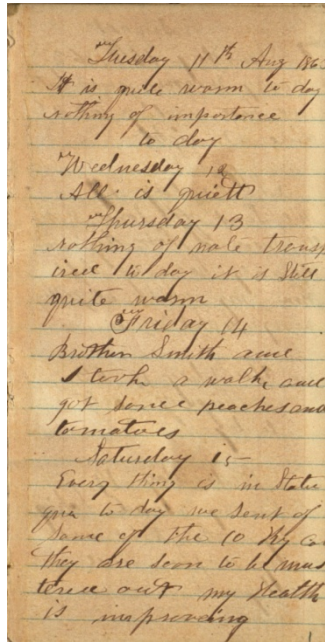 Tuesday 11th Aug 186
It is quite warm to day
nothing of importance
to day
Wednesday 12
All is quiett
Thursday 13
nothing of note transp
ired to day it is Still
quite warm
Friday 14
Brother Smith and
I took a walk and
got some peaches and
tomatoes
Saturday 15
Every thing is in Statu
quo to day we sent of
Some of the 10 Ky
they are soon to be mus
tered out my Health
is improving